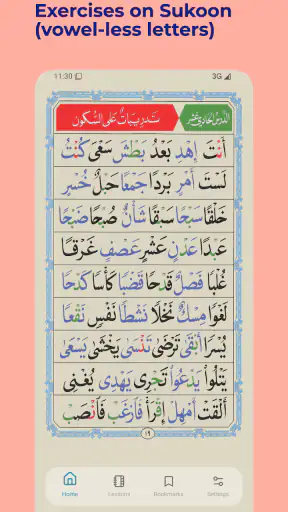 Exercises on Sukoon
(vowel-less letters)
11:30
3G
الدَّرْسُ الْحَادِيْ عَشَرَ تَدْرِيبَاتٌ عَلَى السُّكُونِ
أَنْتَ اِهْدِ بَعْدُ بَطْشَ سَعْىَ كُنْتُ
لَسْتَ أَمْرِ بَرْدًا جَمْعًا حَبْلٌ خُسْرٍ
خَلْقًا سَبْحًا سَبْقًا شَأْنٌ صُبْحًا ضَبْحًا
عَبْدًا عَدْنٍ عَشْرٍ عَصْفٍ غَرْقًا
غُلْبًا فَصْلٌ قَدْحًا قَضْبًا كَأْسًا كَدْحًا
لَغْوًا مِسْكٌ نَخْلًا نَشْطًا نَفْسٍ نَقْعًا
يُسْرًا أَبْقَى تَرْضَى تَنْسَى يَخْشَى يَسْعَى
يَتْلُوا يَدْعُوا تَجْرِى يَهْدِى يُغْنِى
أَلْقَتْ أَمْهِلْ اِقْرَأْ فَارْغَبْ فَانْصَبْ
١٩
Home
Lessons
Bookmarks
Settings